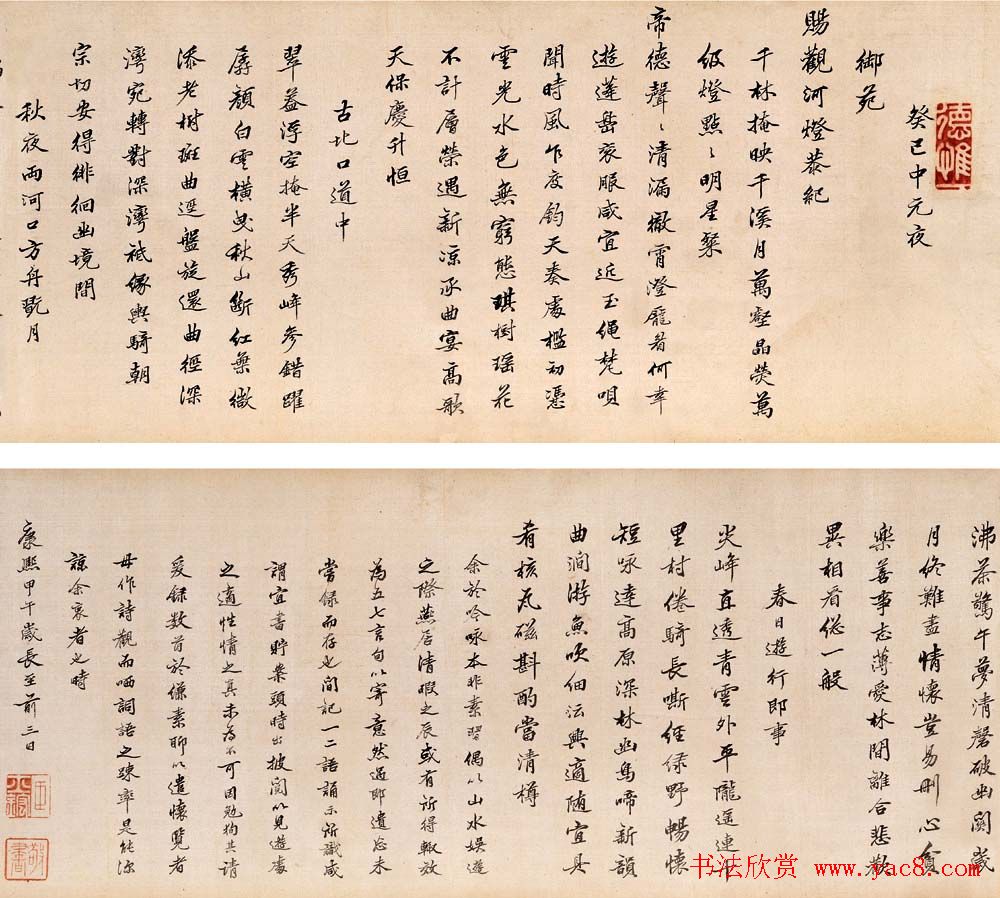 癸巳中元夜
御苑
賜觀河燈恭紀
千林掩映千溪月萬壑晶熒萬
級燈點〻明星粲
帝德聲〻清漏徹霄澄龐眉何幸
遊蓬島衰眼咸宜近玉繩梵唄
聞時風乍度鈞天奏處檻初憑
雲光水色無窮態琪樹瑶花
不計層榮遇新涼承曲宴高歌
天保慶升恒
古北口道中
翠蓋浮空掩半天秀峰參錯躍
孱顏白雲橫曳秋山斷紅葉微
添老樹斑曲逕盤旋還曲徑深
灣宛轉對深灣祗緣輿騎朝
宗切安得徘徊幽境間
秋夜兩河口方舟翫月
沸茶驚午夢清磬破幽關歲
月終難盡情懷豈易刪心貪
樂善事志薄愛林間離合悲歡
異相看總一般
春日遊行即事
尖峰直透青雲外平隴遥連十
里村倦騎長嘶經綠野暢懷
短咏達高原深林幽鳥啼新韻
曲澗游魚吹細沄興適隨宜具
肴核瓦磁斟酌當清樽
余於吟咏本非素習偶以山水娛遊
之際燕居清暇之辰或有所得輒效
為五七言句以寄意然過即遺忘未
當錄而存也間記一二語誦示所識咸
謂宜書貯案頭時出披閱以見遊處
之適性情之真未為不可因勉狥其請
爰錄數首於縑素聊以遣懷覽者
毋作詩觀而哂詞語之疎率是能深
諒余衷者也時
康熙甲午歲長至前三日
敬書
书法欣赏 www.yac8.com